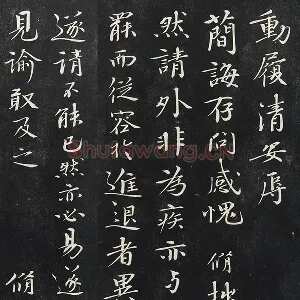 動履清安辱
蕑誨存問感愧 脩
然請外非為疾亦与
羸而從容於進退者異
遂請不能已然亦必易遂
見諭敢及之 脩
shufawang.cn